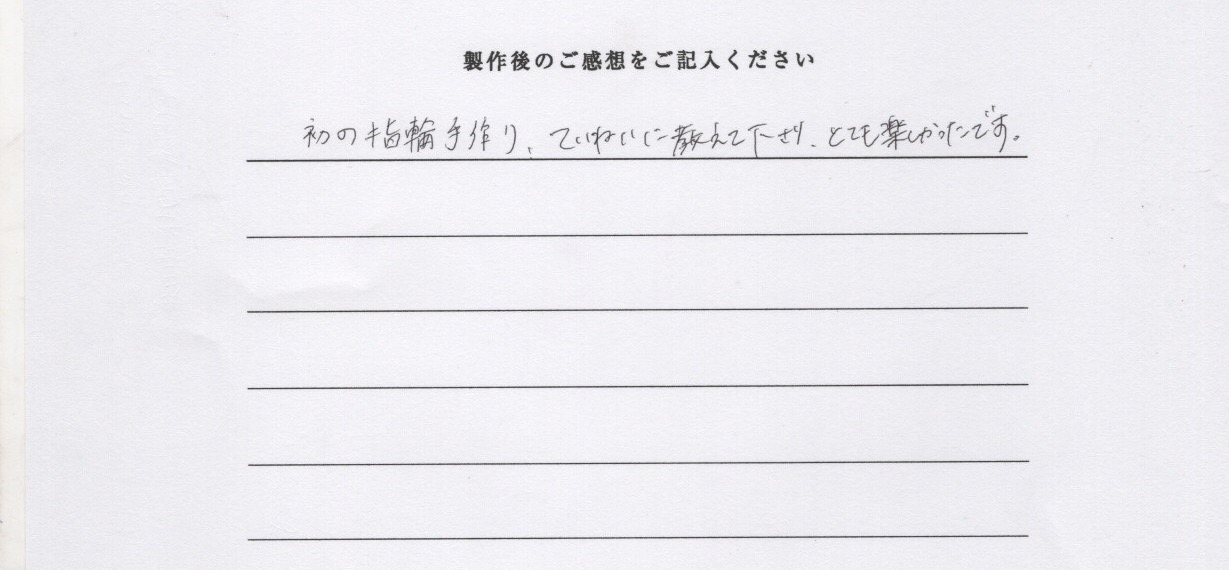 製作後のご感想をご記入ください
初の指輪手作り、ていねいに教えて下さり、とても楽しかったです。